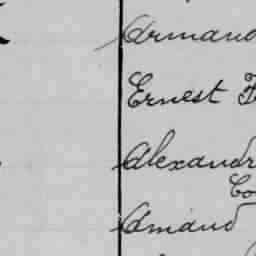 Armand
Ernest F
Alexandr
Co
Amand